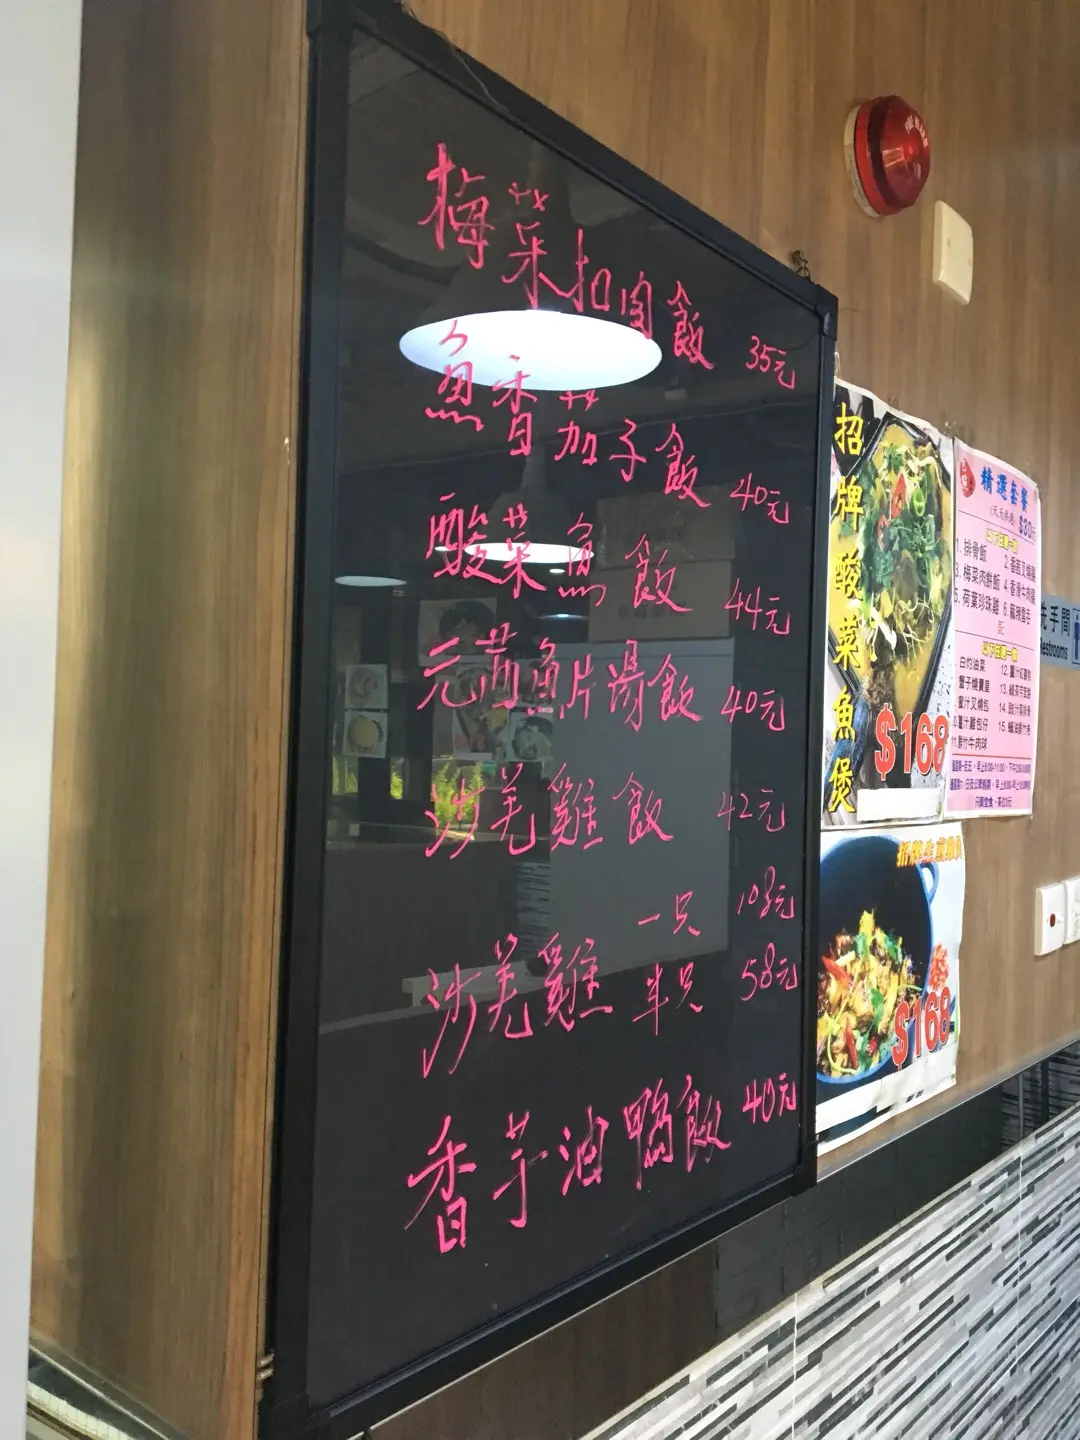 梅菜扣肉飯 35元
魚香茄子飯 40元
酸菜魚飯 44元
元茜魚片湯飯 40元
沙羌雞飯 42元
沙羌雞 一只 108元
半只 58元
香芋油鴨飯 40元
招牌酸菜魚煲
$168
精選套餐
$30
1. 排骨飯
3. 梅菜肉餅飯
5. 荷葉珍珠雞
白灼油菜
蜜汁叉燒包
11. 鮮竹牛肉球
$168
洗手間
Restrooms